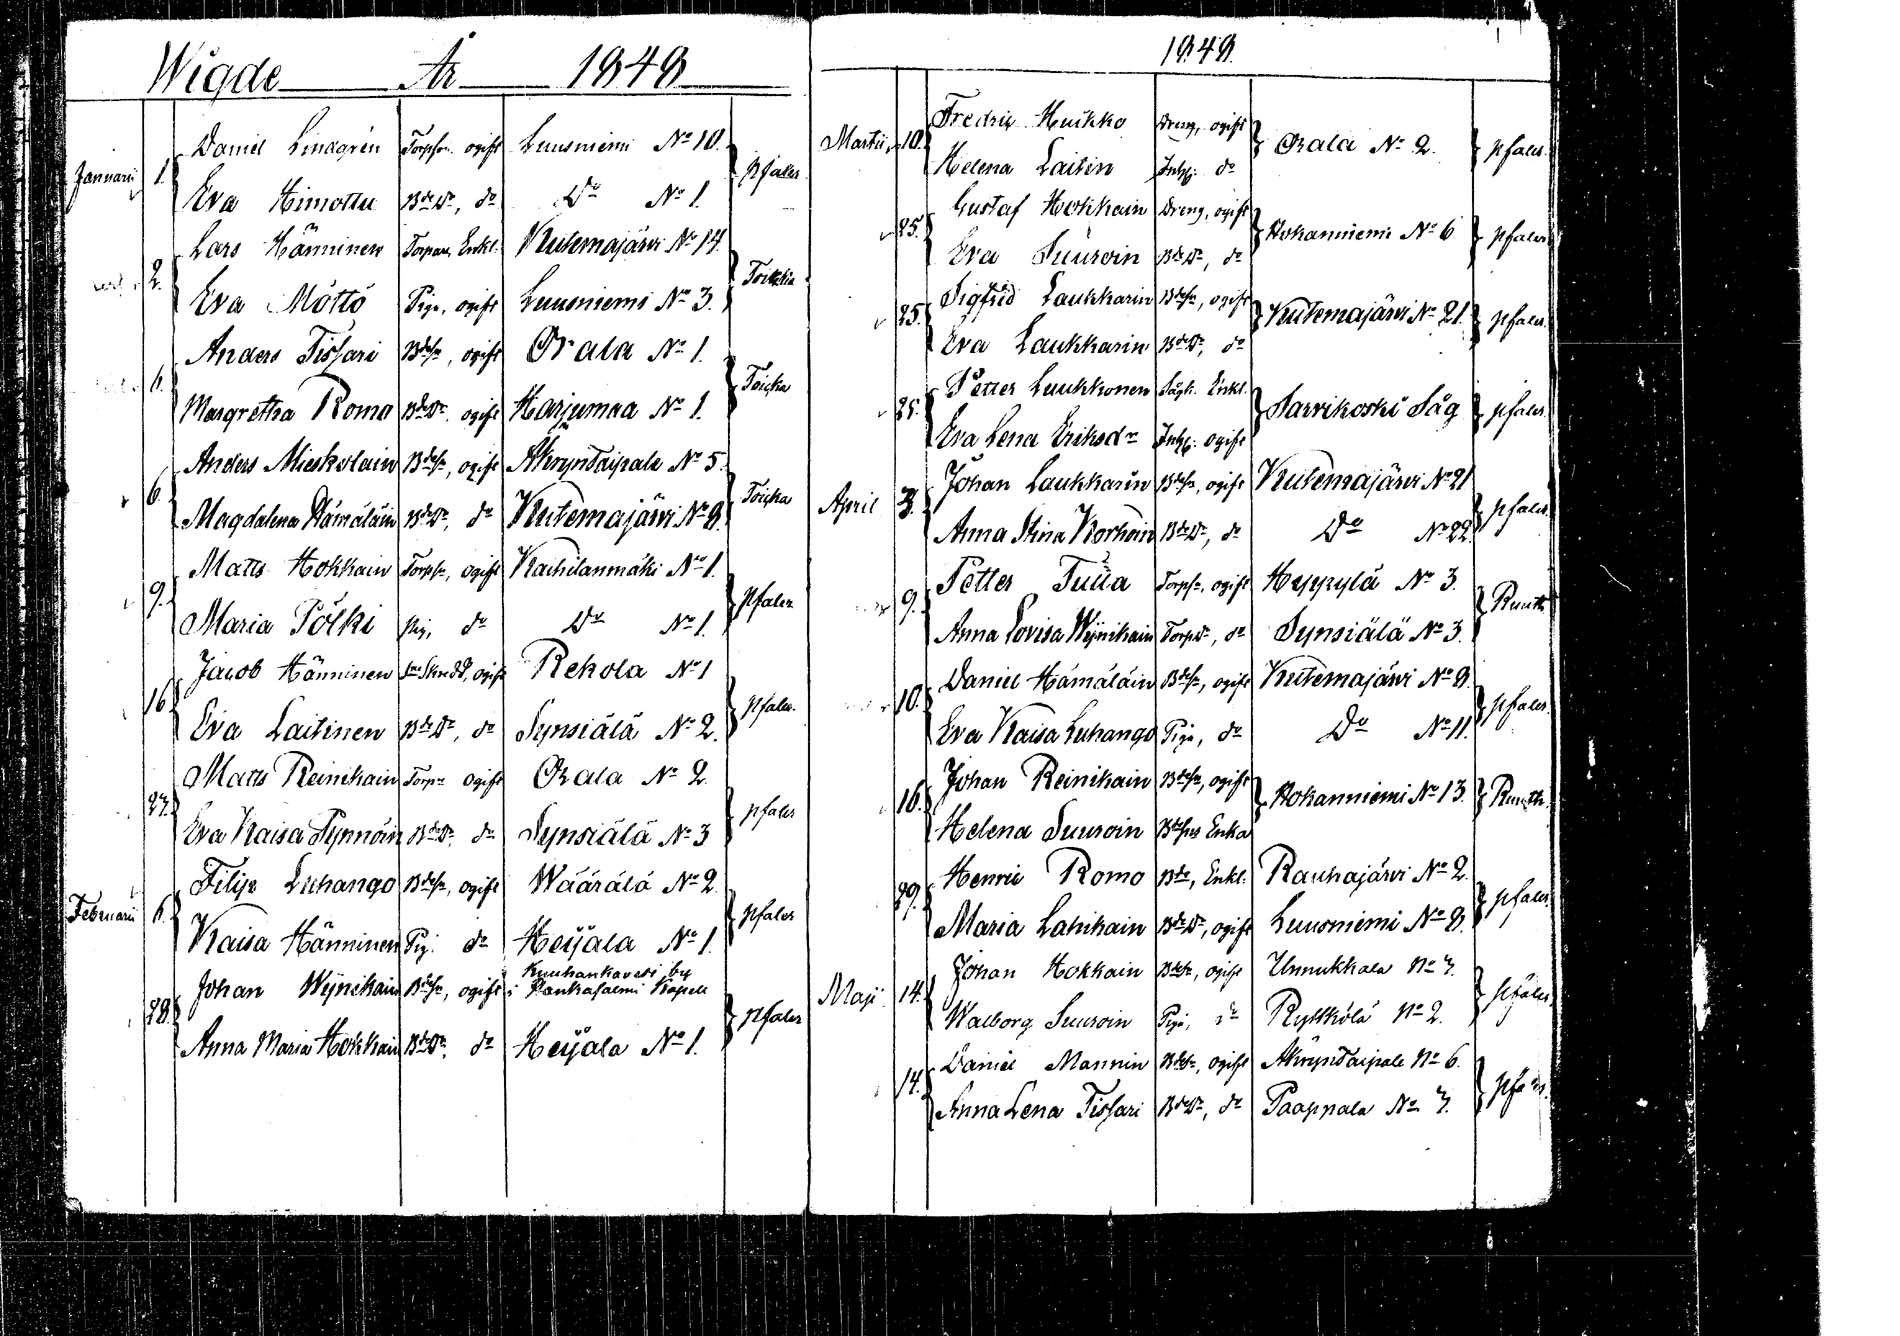 Wigde År 1848
Januarii 1. Daniel Lindgrén Torpson. ogift Luusniemi No 10. pfaler
Eva Himottu BdeDr, do Do No 1.
2. Lars Hänninen Torpare, Enkl. Kutemajärvi No 14. Toickka
Eva Möttö Piga, ogift Luusniemi No 3.
6. Anders Tissari Bdesn, ogift Orala No 1. Toicka
Margretha Romo BdeDr. ogift Harjumaa No 1.
6. Anders Mieskolain Bdesn, ogift Ahvyntaipale No 5. Toicka
Magdalena Hämäläin BdeDr, do Kutemajärvi No 8.
9. Matts Hokkain Torpsn, ogift Kaihilanmäki No 1. pfaler
Maria Pölki pig, do Do No 1.
16. Jacob Hänninen ogift Rekola No 1 pfaler.
Eva Laitinen BdeDr, do Synsiälä No 2.
27. Matts Reinikain Torpn ogift Orala No 2. pfaler
Eva Kaisa Pynnöin BdeDr. do Synsiälä No 3
Februarii 6. Filip Luhango Bdesn, ogift Wäärälä No 2. pfaler
Kaisa Hänninen Pig. do Heijala No 1.
Kuuhankavesi by
28. Johan Wynikain Bdesn, ogift i Kankasalmi Kapell pfaler
Anna Maria Hokkain BdeDr, do Heijala No 1.
1848.
Martii 10. Fredric Huikko Dreng, ogift Orala No 2. pfaler.
Helena Laitin Inhg. do
25. Gustaf Hokkain Dreng, ogift Hokanniemi No 6 pfaler
Eva Suuroin BdeDr, do
25. Sigfrid Laukkarin Bdesn, ogift Kutemajärvi No 21. pfaler.
Eva Laukkarin BdeDr, do
25. Petter Luukkonen Sågk. Enkl. Sarvikoski Såg pfaler.
Eva Lena Eriksdr Inhg. ogift
April 3. Johan Laukkarin Bdesn, ogift Kutemajärvi No 21 pfaler.
Anna Stina Korhoin BdeDr, do Do No 22.
9. Petter Tuila Torpsn, ogift Hyppylä No 3. Ruuth
Anna Lovisa Wynikain TorpDr, do Synsiälä No 3.
10. Daniel Hämäläin Bdesn, ogift Kutemajärvi No 8. pfaler.
Eva Kaisa Luhango Piga, do Do No 11.
16. Johan Reinikain Bdesn, ogift Hokanniemi No 13. Ruuth.
Helena Suuroin Bdesns Enka
29. Henric Romo Bde, Enkl. Rauhajärvi No 2. pfaler.
Maria Lahikain BdeDr, ogift Luusniemi No 8.
Maji 14. Johan Hokkain Bdesn, ogift Unnukkala No 7. pfaler
Walborg Suuroin Piga, do Rykkölä No 2.
14. Daniel Mannin Bdesn, ogift Ahvyntaipale No 6. pfaler.
Anna Lena Tissari BdeDr, do Paappala No 7.